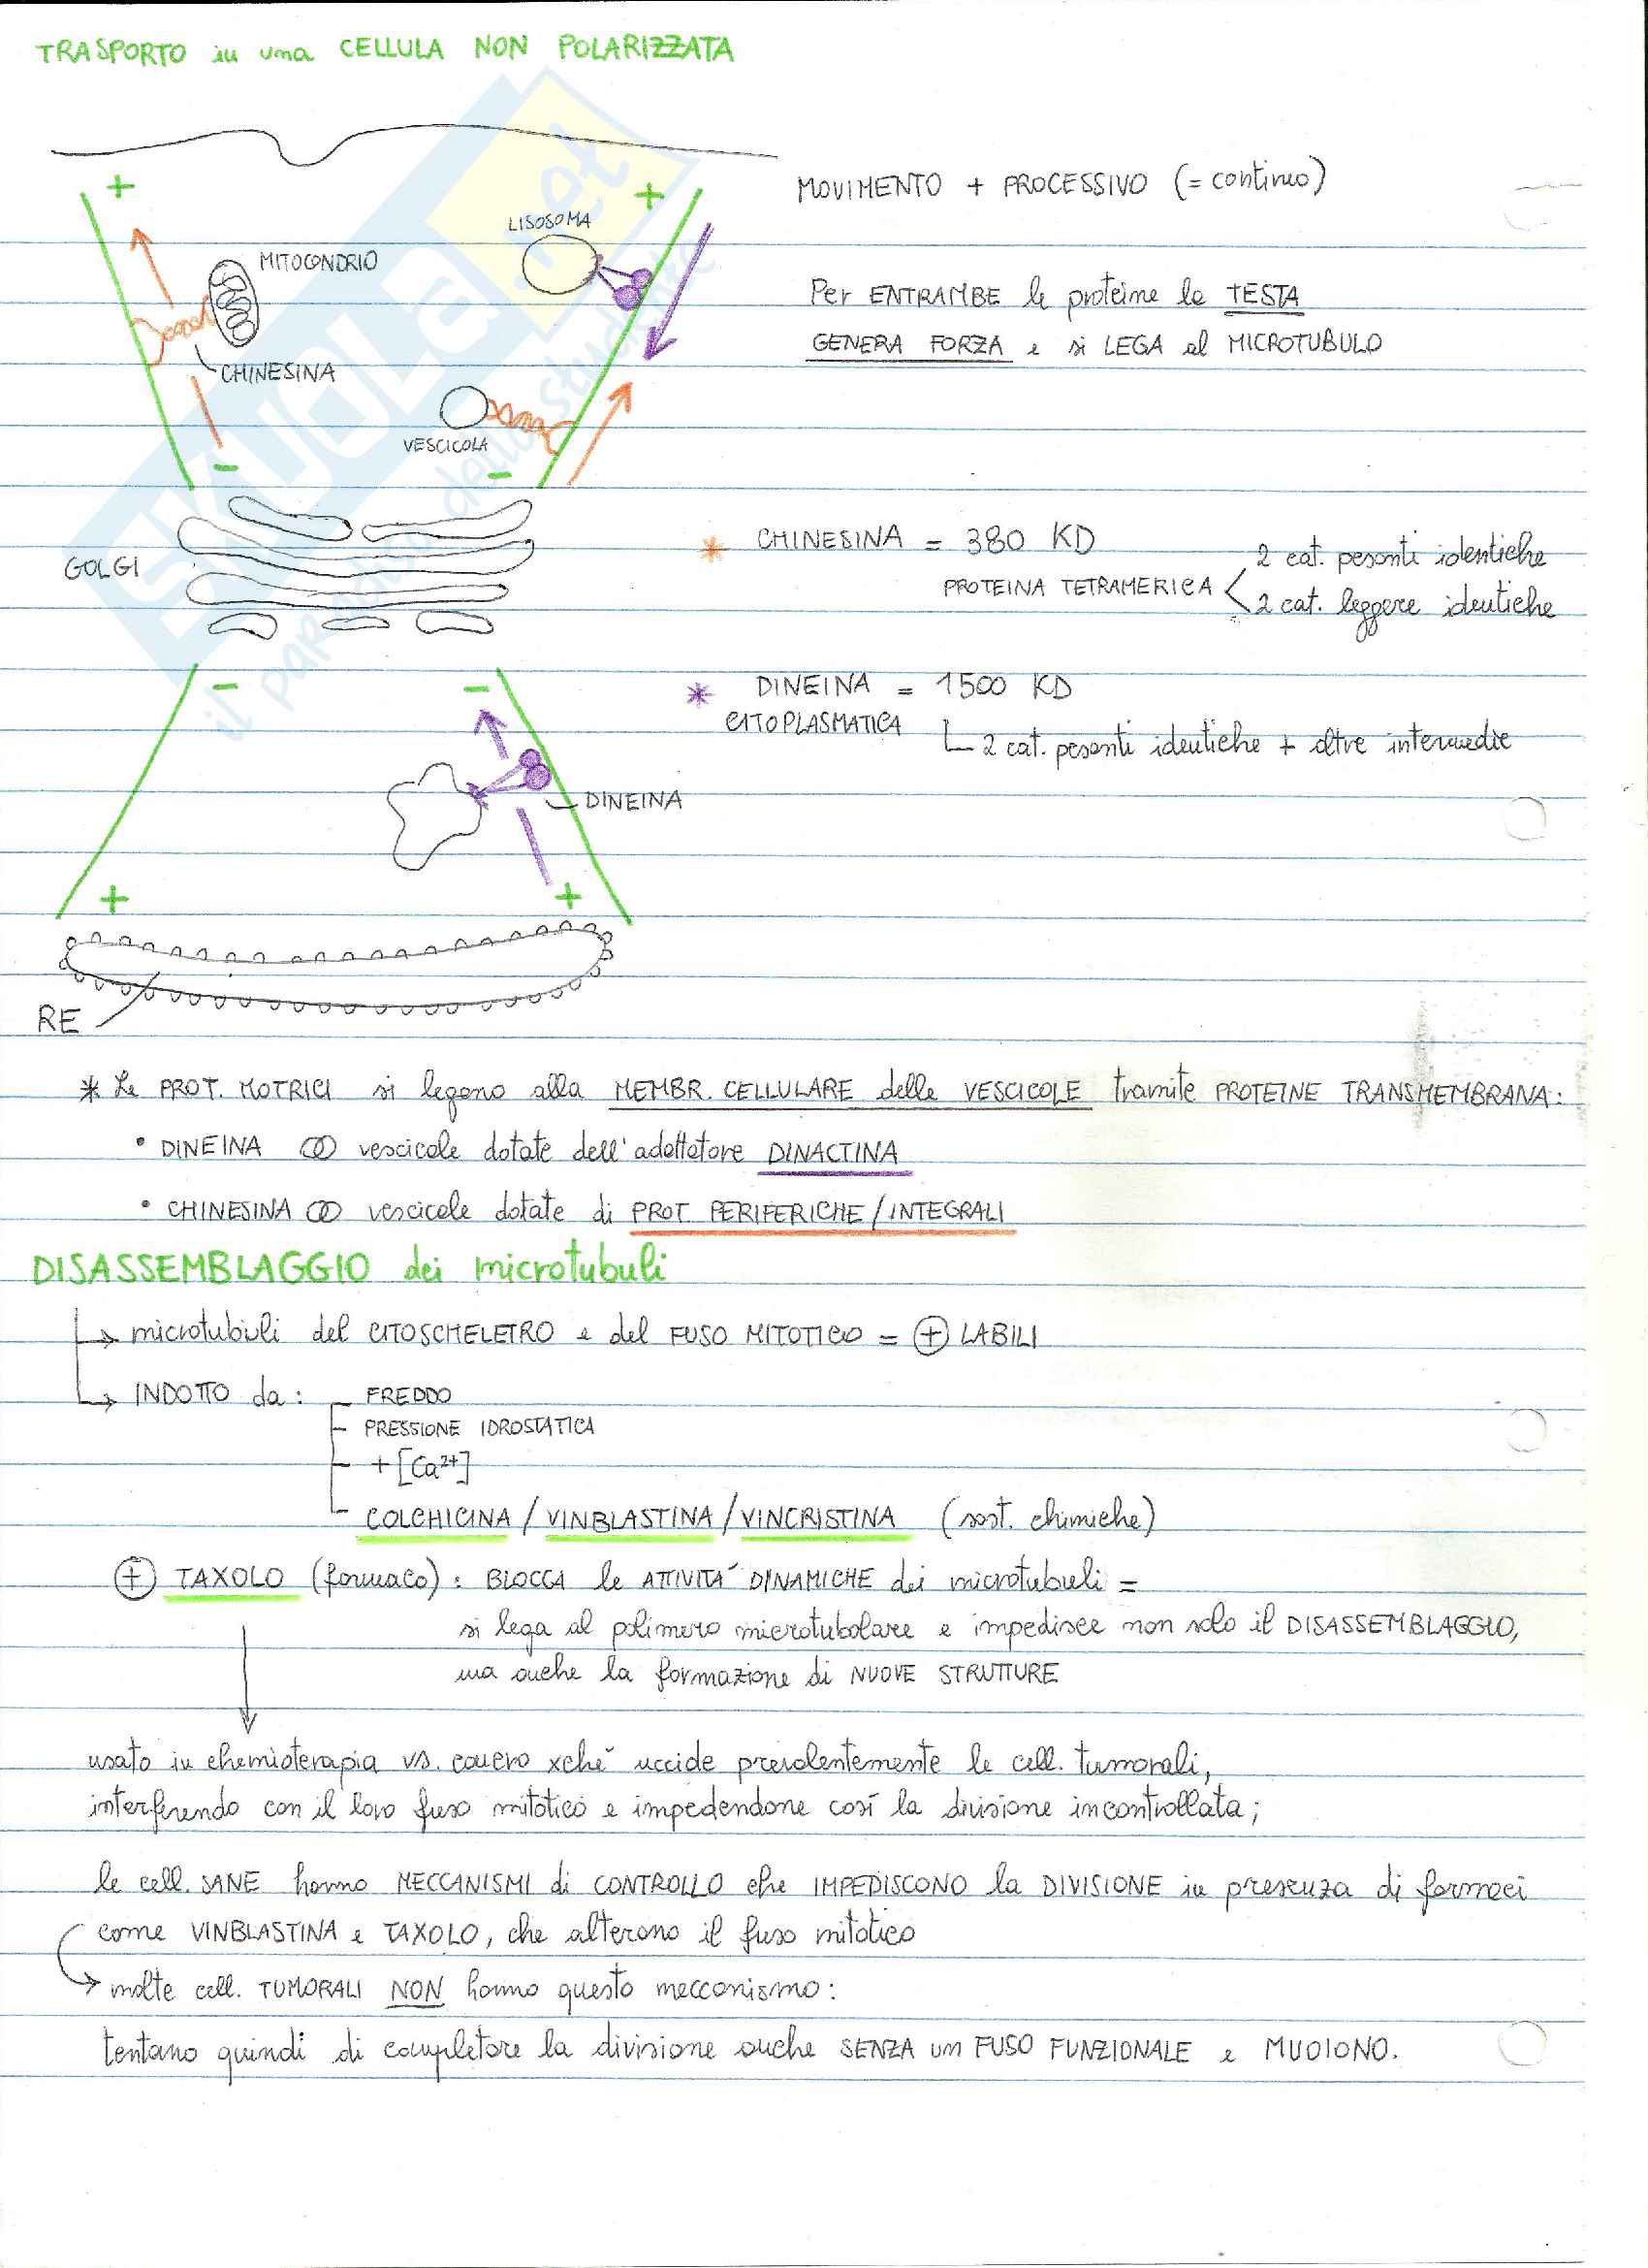 TRASPORTO in una CELLULA NON POLARIZZATA
+
+
LISOSOMA
MITOCONDRIO
CHINESINA
VESCICOLA
-
-
MOVIMENTO + PROCESSIVO (= continuo)
Per ENTRAMBE le proteine la TESTA
GENERA FORZA e si LEGA al MICROTUBULO
GOLGI
* CHINESINA = 380 KD
PROTEINA TETRAMERICA < 2 cat. pesanti identiche
2 cat. leggere identiche
* DINEINA = 1500 KD
CITOPLASMATICA
2 cat. pesanti identiche + altre intermedie
-
-
DINEINA
+
+
RE
* Le PROT. MOTRICI si legano alla MEMBR. CELLULARE delle VESCICOLE tramite PROTEINE TRANSMEMBRANA:
• DINEINA ↀ vescicole dotate dell'adattatore DINACTINA
• CHINESINA ↀ vescicole dotate di PROT. PERIFERICHE/INTEGRALI
DISASSEMBLAGGIO dei microtubuli
→ microtubuli del CITOSCHELETRO e del FUSO MITOTICO = ⊕ LABILI
→ INDOTTO da: - FREDDO
- PRESSIONE IDROSTATICA
- + [Ca²⁺]
- COLCHICINA / VINBLASTINA / VINCRISTINA (sost. chimiche)
⊕ TAXOLO (farmaco): BLOCCA le ATTIVITA' DINAMICHE dei microtubuli =
si lega al polimero microtubolare e impedisce non solo il DISASSEMBLAGGIO,
ma anche la formazione di NUOVE STRUTTURE
usato in chemioterapia vs. cancro xché uccide prevalentemente le cell. tumorali,
interferendo con il loro fuso mitotico e impedendone così la divisione incontrollata;
le cell. SANE hanno MECCANISMI di CONTROLLO che IMPEDISCONO la DIVISIONE in presenza di farmaci
come VINBLASTINA e TAXOLO, che alterano il fuso mitotico
→ molte cell. TUMORALI NON hanno questo meccanismo:
tentano quindi di completare la divisione anche SENZA un FUSO FUNZIONALE e MUOIONO.
SKUOLA.net
il paradiso dello studente